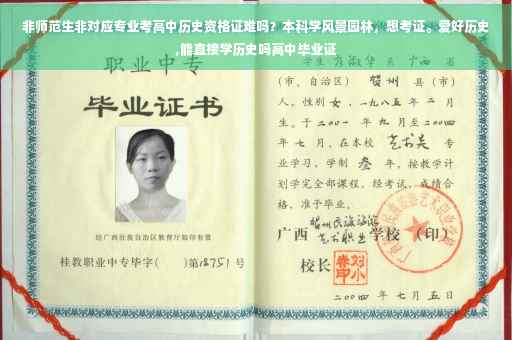 非师范生非对应专业考高中历史资格证难吗？本科学风景园林，想考证。爱好历史
,能直接学历史吗高中毕业证
职业中专
毕业证书
经广西壮族自治区教育厅验印有效
桂教职业中专毕字（ ）第18751号
广西 省
(市、自治区) 贺州 县(市)
人，性别女，一九八五年二月
生。于二〇〇一年九月至二〇〇四
年七月，在本校 艺术美 专
业学习，学制 叁 年，按教学计
划学完全部课程，经考试，成绩合
格，准予毕业。
广西 艺术职业学校（印）
校长
二〇〇四年七月五日